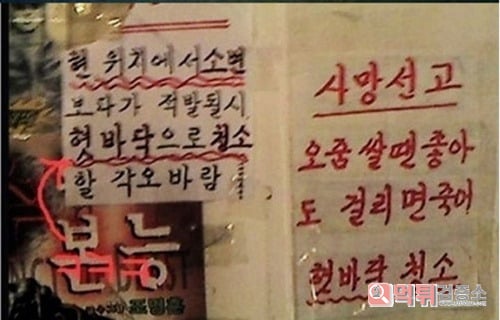 현 위치에서소변
보다가 적발될시
혓바닥으로청소
할 각오바람
본능
조명훈
사망선고
오줌 쌀땐좋아
도 걸리면죽어
혓바닥 청소
먹튀검증소